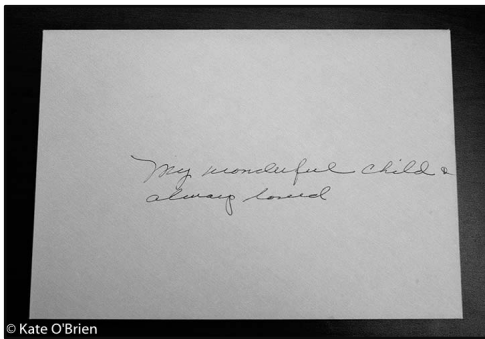 My wonderful child &
always loved
© Kate O'Brien